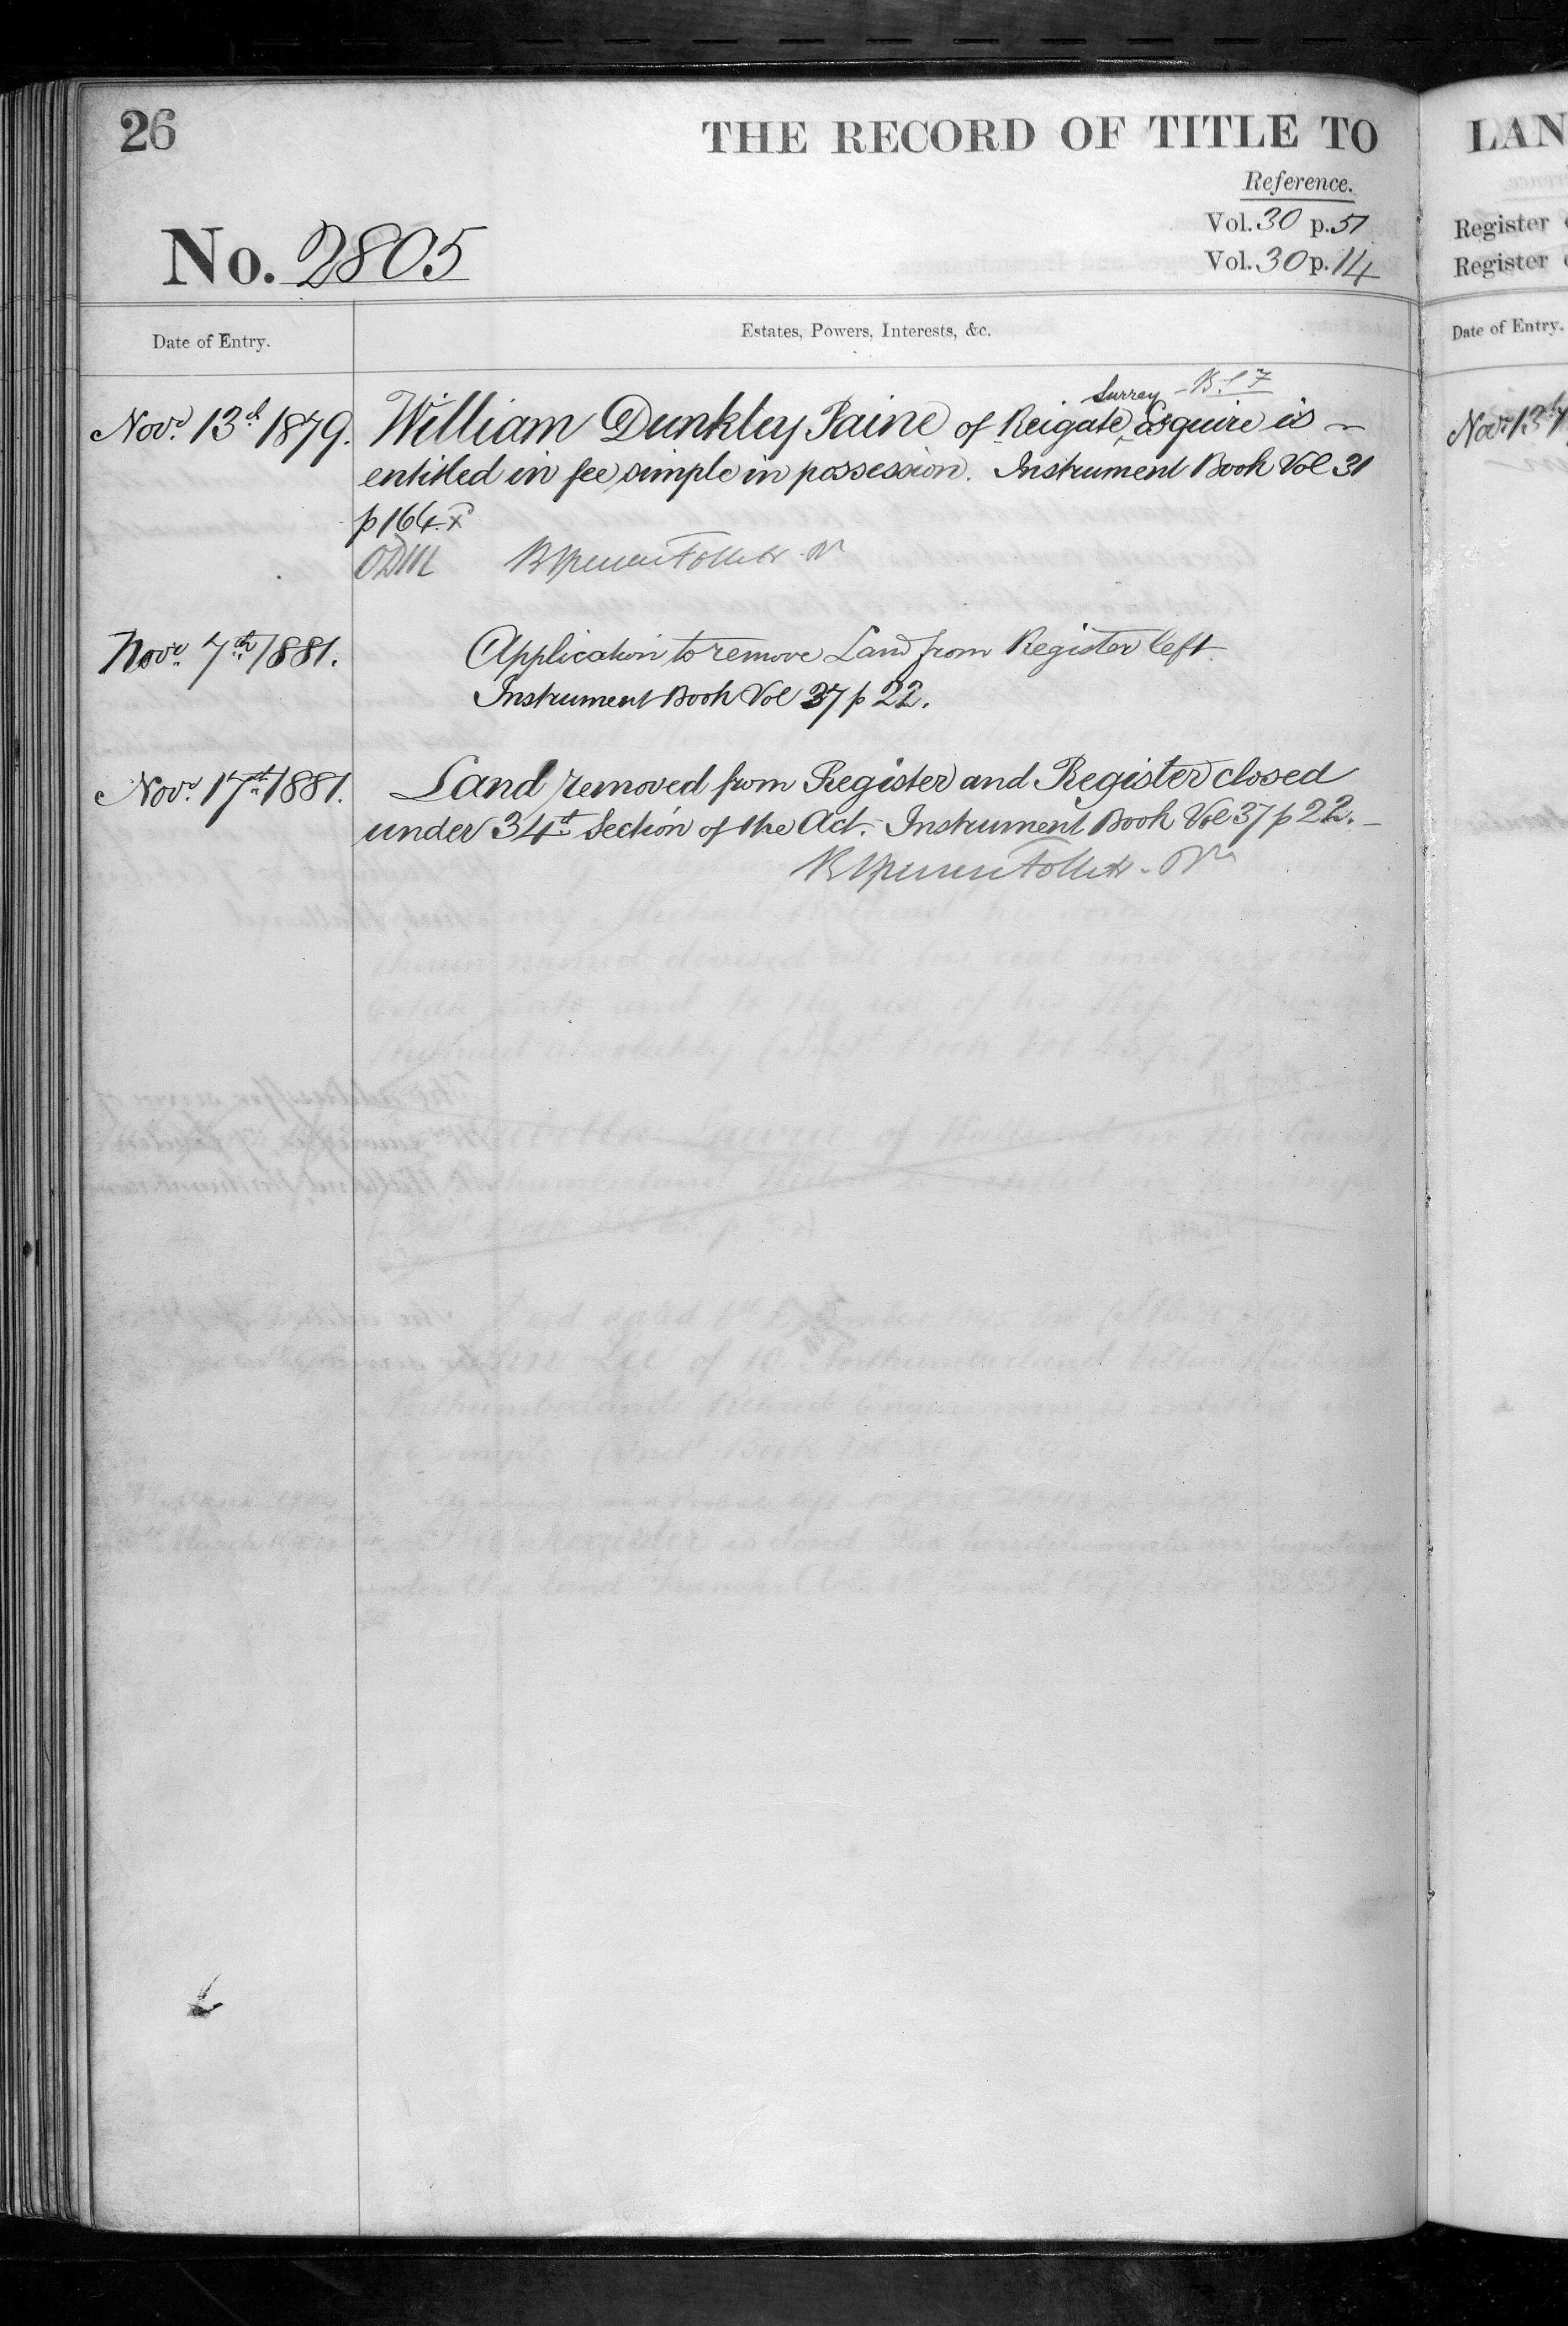 26
THE RECORD OF TITLE TO
Reference.
No. 2805
Vol. 30 p. 51
Vol. 30 p. 14
Date of Entry.
Estates, Powers, Interests, &c.
Surrey
Novr. 13th 1879.
William Dunkley Paine of Reigate, Esquire is
entitled in fee simple in possession. Instrument Book Vol 31
p 164. x
Novr. 7th 1881.
Application to remove Land from Register left.
Instrument Book Vol 37 p 22.
Novr. 17th 1881.
Land removed from Register and Register closed
under 34th Section of the Act. Instrument Book Vol 37 p 22.
LAN
Register
Register
Date of Entry.
Novr. 13th